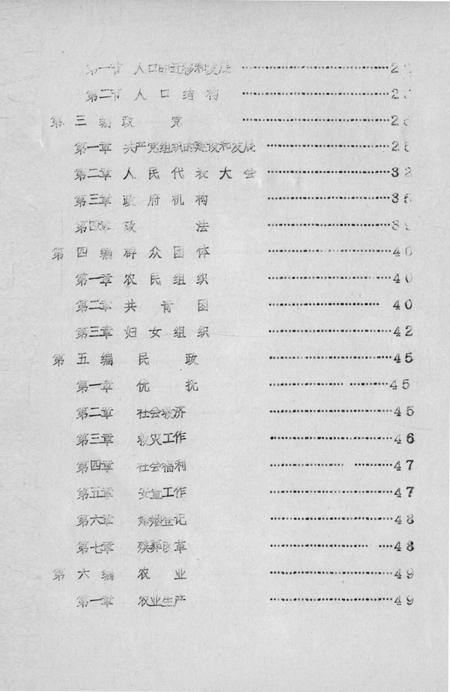 第一节 人口的迁移和发展 …… 2
第二节 人口结构 …… 2
第三编 政党 …… 2
第一章 共产党组织的建设和发展 …… 2
第二章 人民代表大会 …… 32
第三章 政府机构 …… 35
第四章 政法 …… 39
第四编 群众团体 …… 40
第一章 农民组织 …… 40
第二章 共青团 …… 40
第三章 妇女组织 …… 42
第五编 民政 …… 45
第一章 优抚 …… 45
第二章 社会救济 …… 45
第三章 救灾工作 …… 46
第四章 社会福利 …… 47
第五章 安置工作 …… 47
第六章 婚姻登记 …… 48
第七章 殡葬改革 …… 48
第六编 农业 …… 49
第一章 农业生产 …… 49